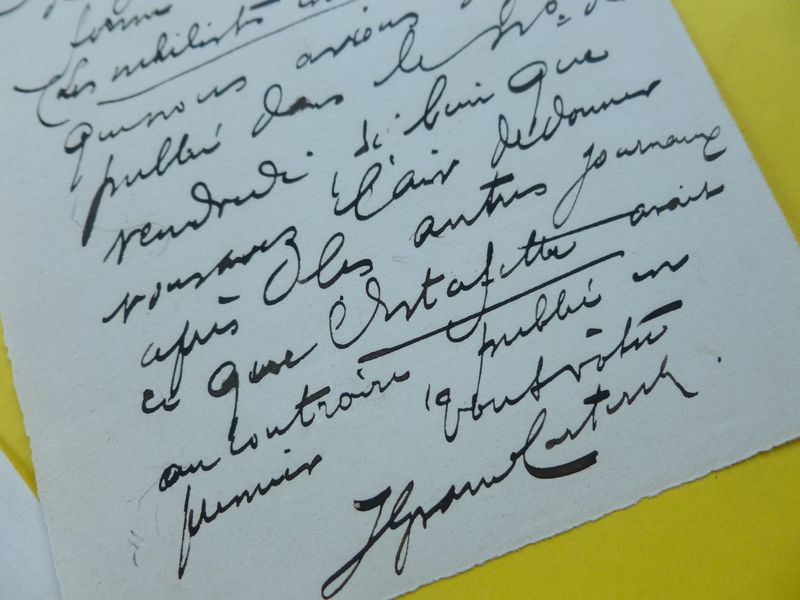 forme
Les nihilistes
que nous avions
publié dans le No de
vendredi si bien que
vous avez l'air de donner
après les autres journaux
ce que l'Estafette avait
au contraire publié en
premier
tout vôtre
J Grand Carteret.